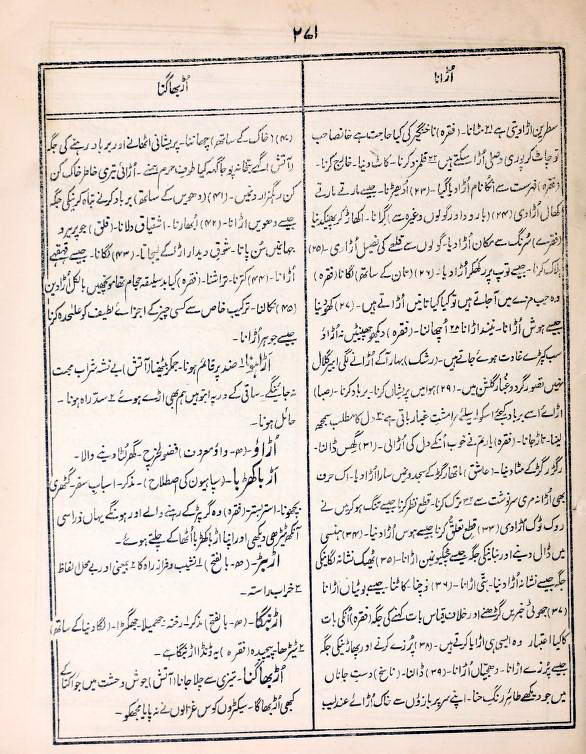 ۲۷۱
اُڑانا
اُڑبھاگنا
سطریں اڑا دیتی ہے ۲۱۔ مٹانا۔ (فقرہ) ناختگیر کی کیا حاجت ہے خانصاحب
تو چاٹ کر پوری وصلی اُڑا سکتے ہیں ۲۲ قلمزد کرنا۔ کاٹ دینا۔ خارج کرنا۔
(فقرہ) فہرست سے اُنکا نام اُڑا دیا گیا۔ (۲۳) اُدھیڑنا۔ جیسے مارتے مارتے
کھال اُڑا دی (۲۴) (بارود اور گولوں وغیرہ سے) گرانا۔ اکھاڑ کر پھینکدینا
(فقرے) سرنگ سے مکان اُڑا دیا۔ گولوں سے قلعے کی فصیل اُڑا دی۔ (۲۵)
ہلاک کرنا۔ جیسے توپ پر رکھکر اُڑا دیا۔ (۲۶) (تان کے ساتھ) لگانا (فقرہ)
وہ جب مزے میں آجاتے ہیں تو کیا کیا تانیں اُڑاتے ہیں۔ (۲۷) کھو دینا
جیسے ہوش اُڑانا۔ نیند اُڑانا ۲۸ اُچھالنا۔ (فقرہ) دیکھو چھینٹیں نہ اُڑاؤ
سب کپڑے غارت ہوئے جاتے ہیں۔ (رشک) بہار آکے اُڑانے لگی عبیر گلال
نہیں تصور گرد و غبار گلشن میں۔ (۲۹) ہوا میں پریشاں کرنا۔ برباد کرنا۔ (صبا)
لینا۔ تاڑ جانا۔ (فقرہ) یار تم نے خوب اُنکے دل کی اُڑائی۔ (۳۱) گھِس ڈالنا۔
رگڑ رگڑ کے مٹا دینا۔ (عاشق) ماتھا رگڑ کے سجدوں میں سارا اُڑا دیا۔ اک حرف
بھی اُڑا نہ مری سرنوشت سے ۳۲ ترک کرنا۔ قطع نظر کرنا جیسے تنگ ہو کر میں نے
روک ٹوک اُڑا دی (۳۳) قطع تعلق کرنا جیسے ہوس اُڑا دینا۔ (۳۴) ہنسی
میں ڈال دینے اور بنانیکی جگہ جیسے چٹکیوں میں اڑانا۔ (۳۵) ٹھیک نشانہ لگانیکی
جگہ جیسے نشانہ اُڑا دینا۔ بتی اڑانا۔ (۳۶) نوچنا۔ کاٹنا۔ جیسے بوٹیاں اُڑانا
(۳۷) جھوٹی خبریں گڑھنے اور خلاف قیاس بات کہنے کی جگہ (فقرہ) اُنکی بات
کا کیا اعتبار وہ ایسی ہی اُڑایا کرتے ہیں۔ (۳۸) پُرزے کرنے اور پھاڑنیکی جگہ
جیسے پُرزے اُڑانا۔ دھجیاں اُڑانا۔ (۳۹) ڈالنا۔ (ناسخ) دست جاناں
میں جو دیکھے طائر رنگ حنا۔ اپنے سر پر بازوؤں سے خاک اُڑائے عندلیب
(۴۰) (خاک کے ساتھ) چھاننا۔ پریشانی اٹھانے اور برباد رہنے کی جگہ
کن رہگزار و نمیں۔ (۴۱) (دھویں کے ساتھ) برباد کرنے تباہ کرنیکی جگہ
جیسے دھویں اُڑانا۔ (۴۲) اُبھارنا۔ اشتیاق دلانا۔ (قلق) جو پریرو
جہاں میں سُن پاتا۔ شوق دیدار اُڑا کے لیجاتا۔ (۴۳) لگانا۔ جیسے قہقہے
اُڑانا۔ (۴۴) کترنا۔ تراشنا۔ (فقرہ) کیا بدسلیقہ حجام تھا مونچھیں بالکل اُڑا دیں
(۴۵) نکالنا۔ ترکیب خاص سے کسی چیز کے اجزائے لطیف کو علٰحدہ کرنا
جیسے جوہر اُڑانا۔
اَڑا ہونا۔ ضد پر قائم ہونا۔ جمکر بیٹھنا (آتش) بے نشہ شراب محبت
نہ جائینگے۔ ساقی کے در پہ اینڈتے ہیں ہم بھی اڑے ہوئے ۲ سدراہ ہونا۔
حائل ہونا۔
اُڑاؤ۔ (ھ۔ واؤ معروف) فضول خرچ۔ گھر لٹا دینے والا۔
اڑ بکھیڑا۔ (سپاہیوں کی اصطلاح)۔ مذکر۔ اسباب سفر۔ گٹھری
بچھونا۔ استر بستر (فقرہ) وہ گر پڑ کے رہنے والے اور ہونگے یہاں ذرا سی
آنکھ ٹیڑھی دیکھی اور اپنا اڑ بکھیڑا اُٹھا کے چلتے ہوئے۔
اَڑبَڑ۔ (ھ۔ بالفتح) ۱ نشیب و فراز راہ کا ۲ بیمعنی اور بے محل الفاظ
۳ خراب راستہ۔
اَڑبَنگا۔ (ھ۔ بالفتح) مذکر۔ رخنہ۔ جھمیلا۔ جھگڑا۔ (لگا دینا کے ساتھ)
۲ ٹیڑھا۔ پیچیدہ (فقرہ) یہ ڈنڈا اڑبنگا ہے۔
اُڑبھاگنا۔ تیزی سے چلا جانا (آتش) جوش وحشت میں جو اُکتا کے
کبھی اُڑ بھاگا۔ سیکڑوں کوس غزالوں نے نہ پایا مجھکو۔